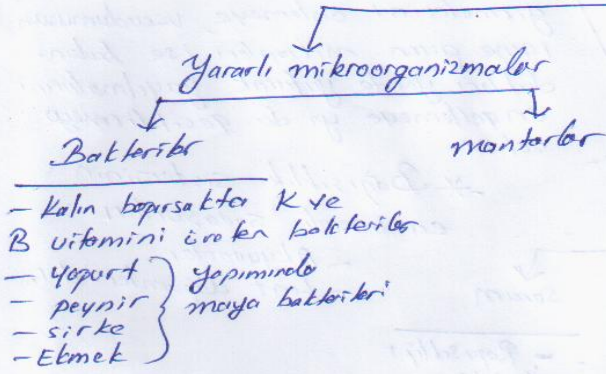 Yararlı mikroorganizmalar
Bakteriler
mantarlar
- Kalın bağırsakta K ve
B vitamini üreten bakteriler
- Yoğurt
- peynir
- sirke
- Ekmek
yapımında
maya bakterileri